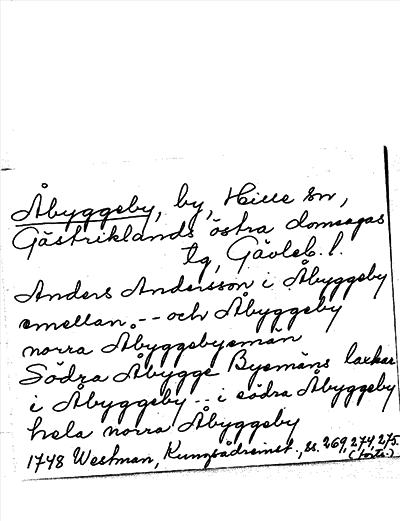 Åbyggeby, by, Hille sn,
Gästriklands östra domsagas
tg, Gävleb. l.
Anders Andersson i Åbyggeby
emellan -- och Åbyggeby
norra Åbyggebyemän
Södra Åbygge Byemäns laxkar
i Åbyggeby -- i södra Åbyggeby
hela norra Åbyggeby
1748 Westman, Kungsådreinst., s. 269, 274, 275.
(forts.)